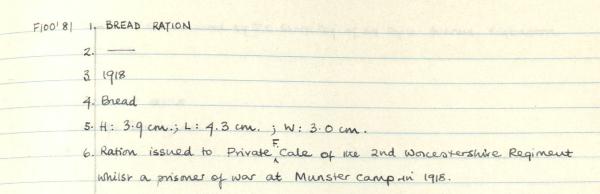 F100'81 1. BREAD RATION
2. ——
3. 1918
4. Bread
5. H: 3.9 cm.; L: 4.3 cm. ; W: 3.0 cm.
6. Ration issued to Private F. Cale of the 2nd Worcestershire Regiment
whilst a prisoner of war at Munster Camp in 1918.